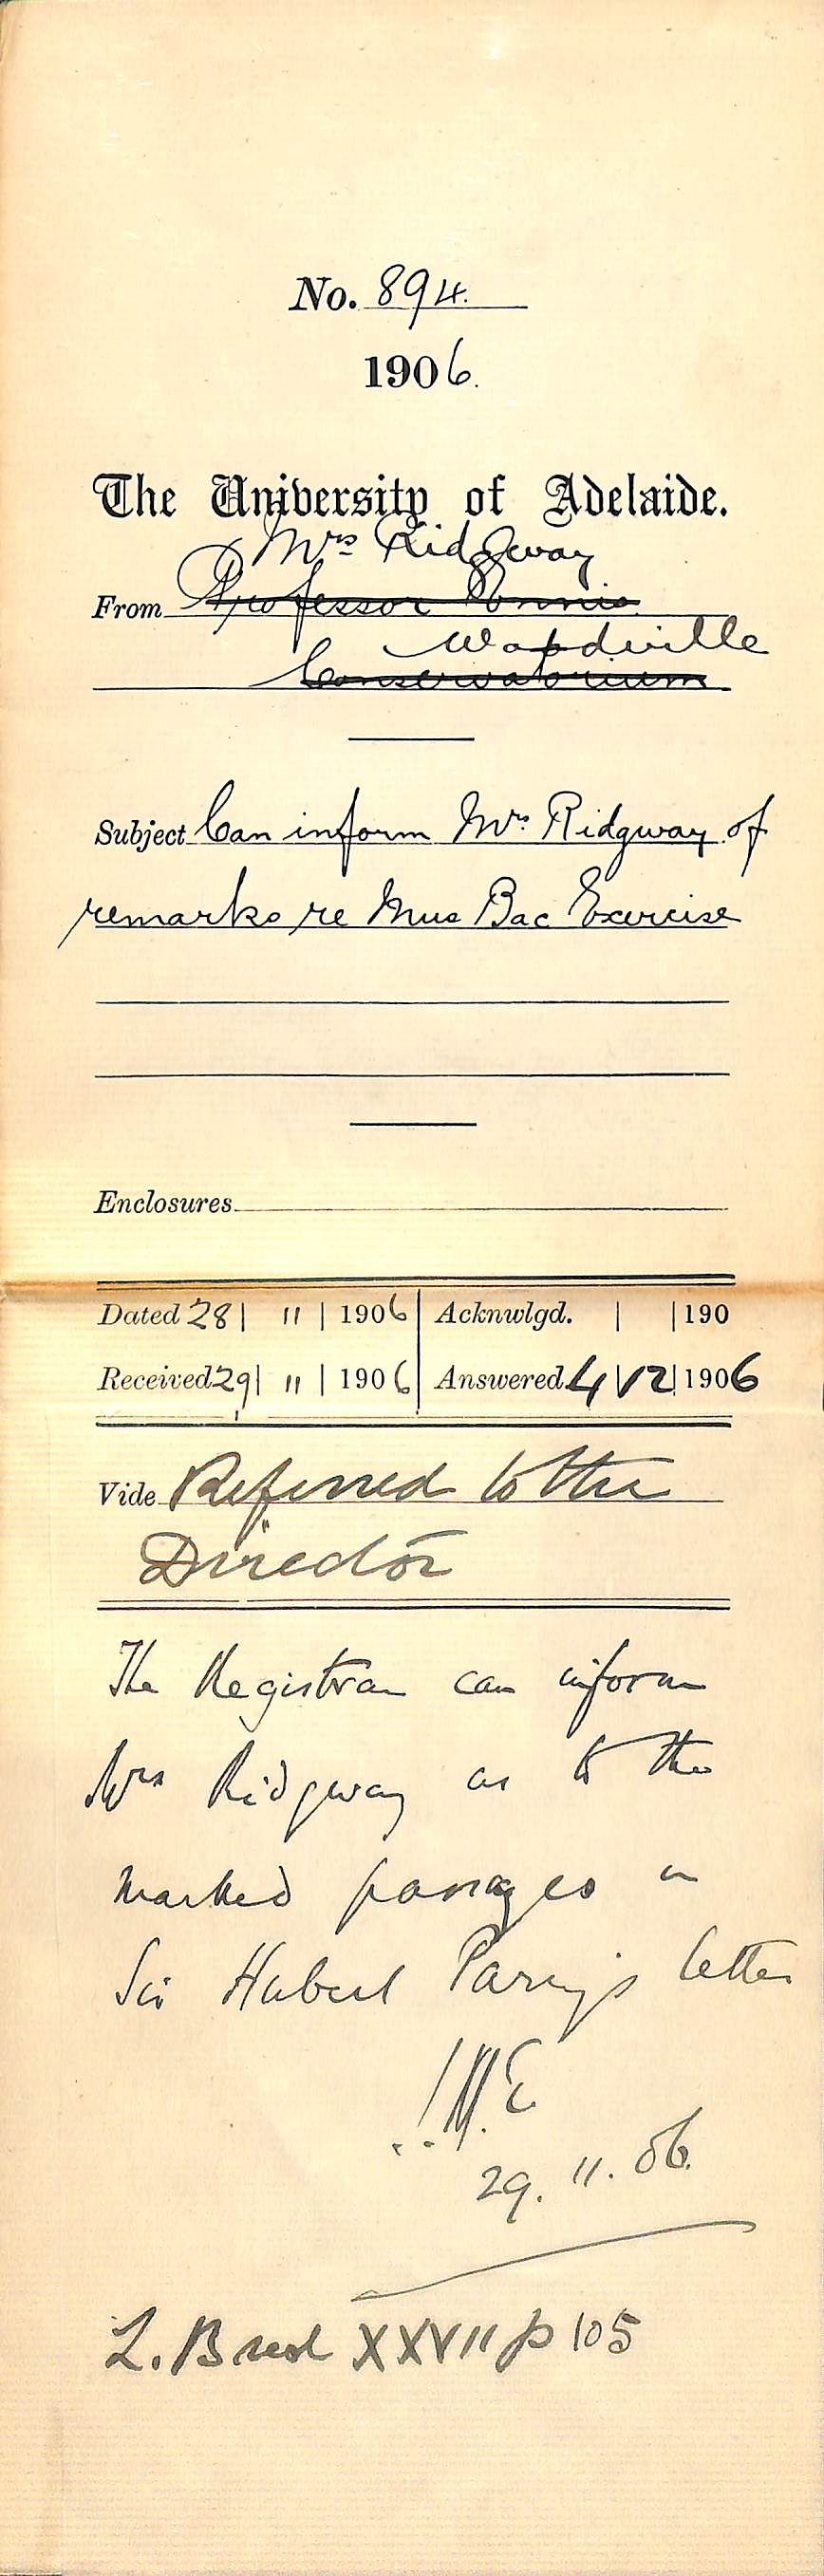 No. 894.
1906.
The University of Adelaide.
Mrs Ridgway
From Professor Ennis
Woodville
Conservatorium
Subject Can inform Mrs. Ridgway of
remarks re Mus Bac Exercise
Enclosures
Dated 28 | 11 | 1906 Acknwlgd. | | 190
Received 29 | 11 | 1906 Answered 4 | 12 | 1906
Vide Referred to the
Director
The Registrar can inform
Mrs Ridgway as to the
marked passages in
Sir Hubert Parry's letter
E
29. 11. 06.
L. B XXVII p 105